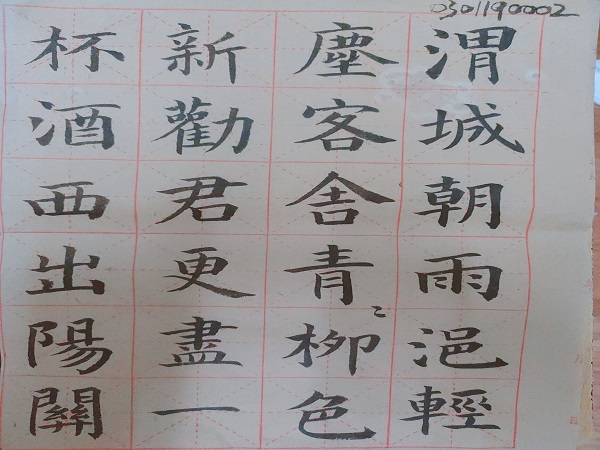 0301190002
渭城朝雨浥輕
塵客舍青柳色
新勸君更盡一
杯酒西出陽關